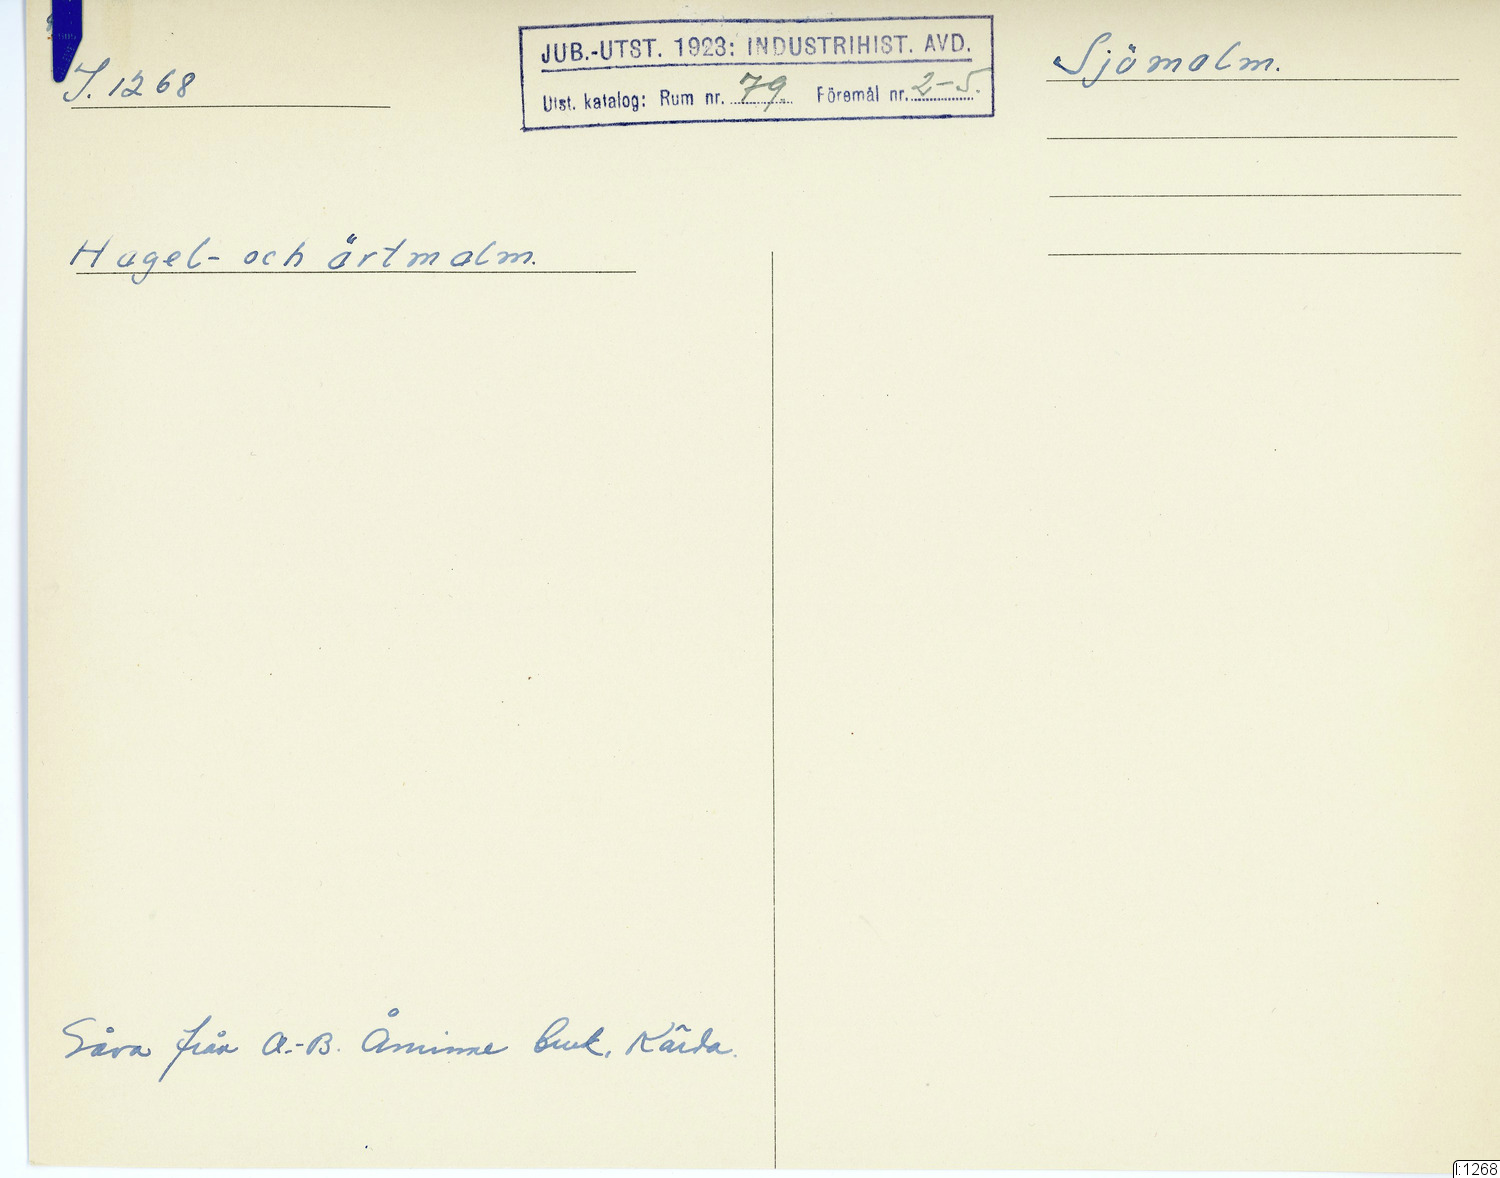 I. 1268
JUB.-UTST. 1923: INDUSTRIHIST. AVD.
Utst. katalog: Rum nr. 79. Föremål nr. 2-5.
Sjömalm.
Hagel- och ärtmalm.
Gåva från A.-B. Åminne bruk, Kärda.
I:1268